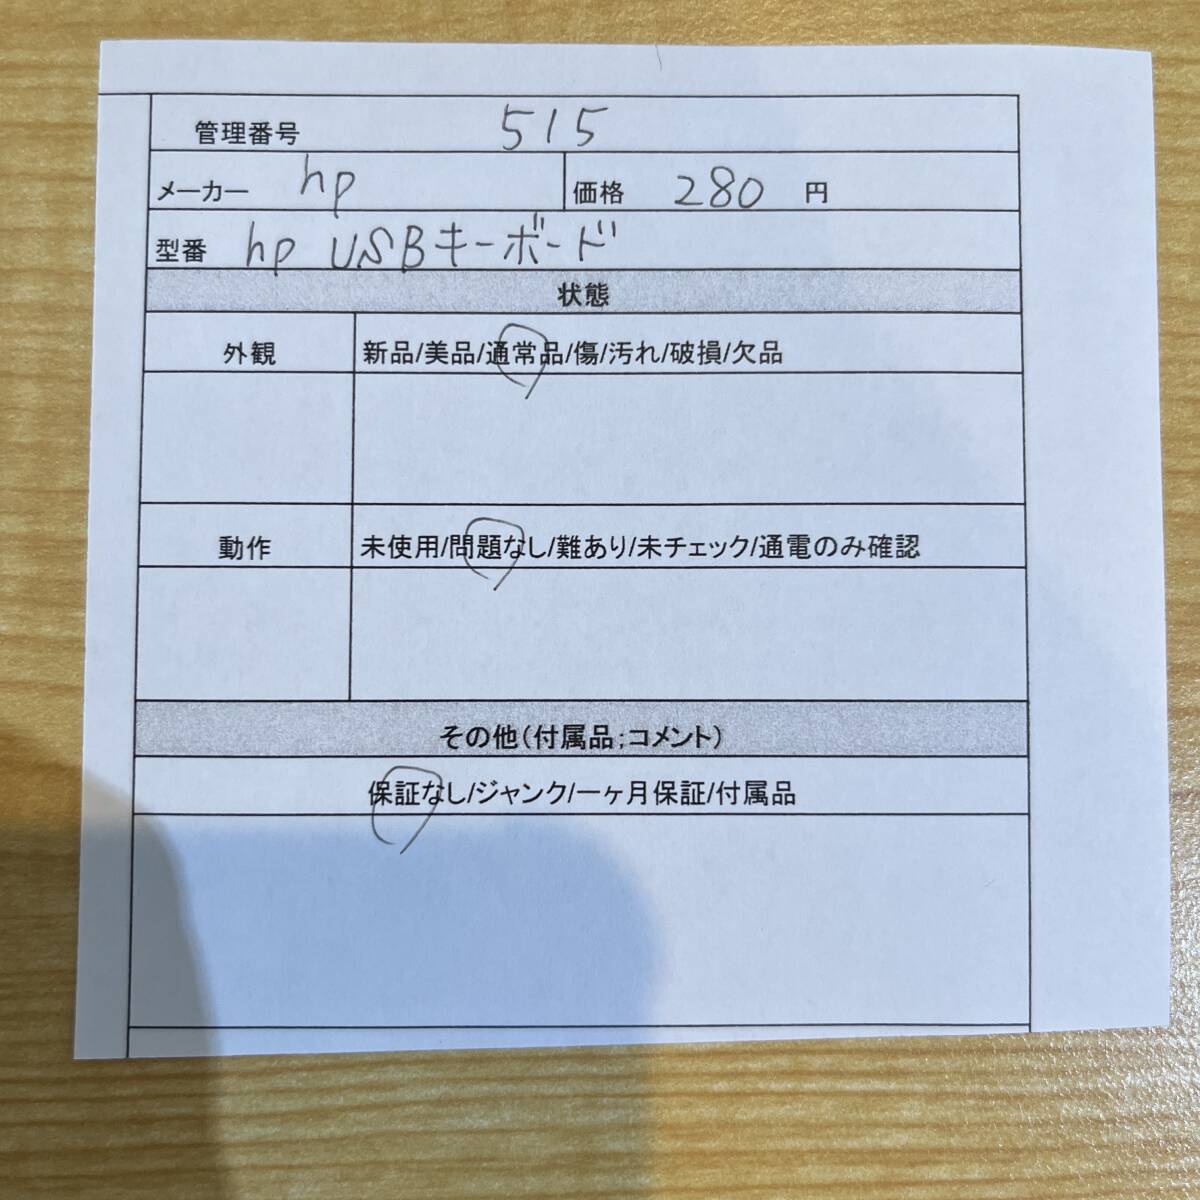 管理番号 515
メーカー hp 価格 280 円
型番 hp USBキーボード
状態
外観 新品/美品/通常品/傷/汚れ/破損/欠品
動作 未使用/問題なし/難あり/未チェック/通電のみ確認
その他(付属品;コメント)
保証なし/ジャンク/一ヶ月保証/付属品